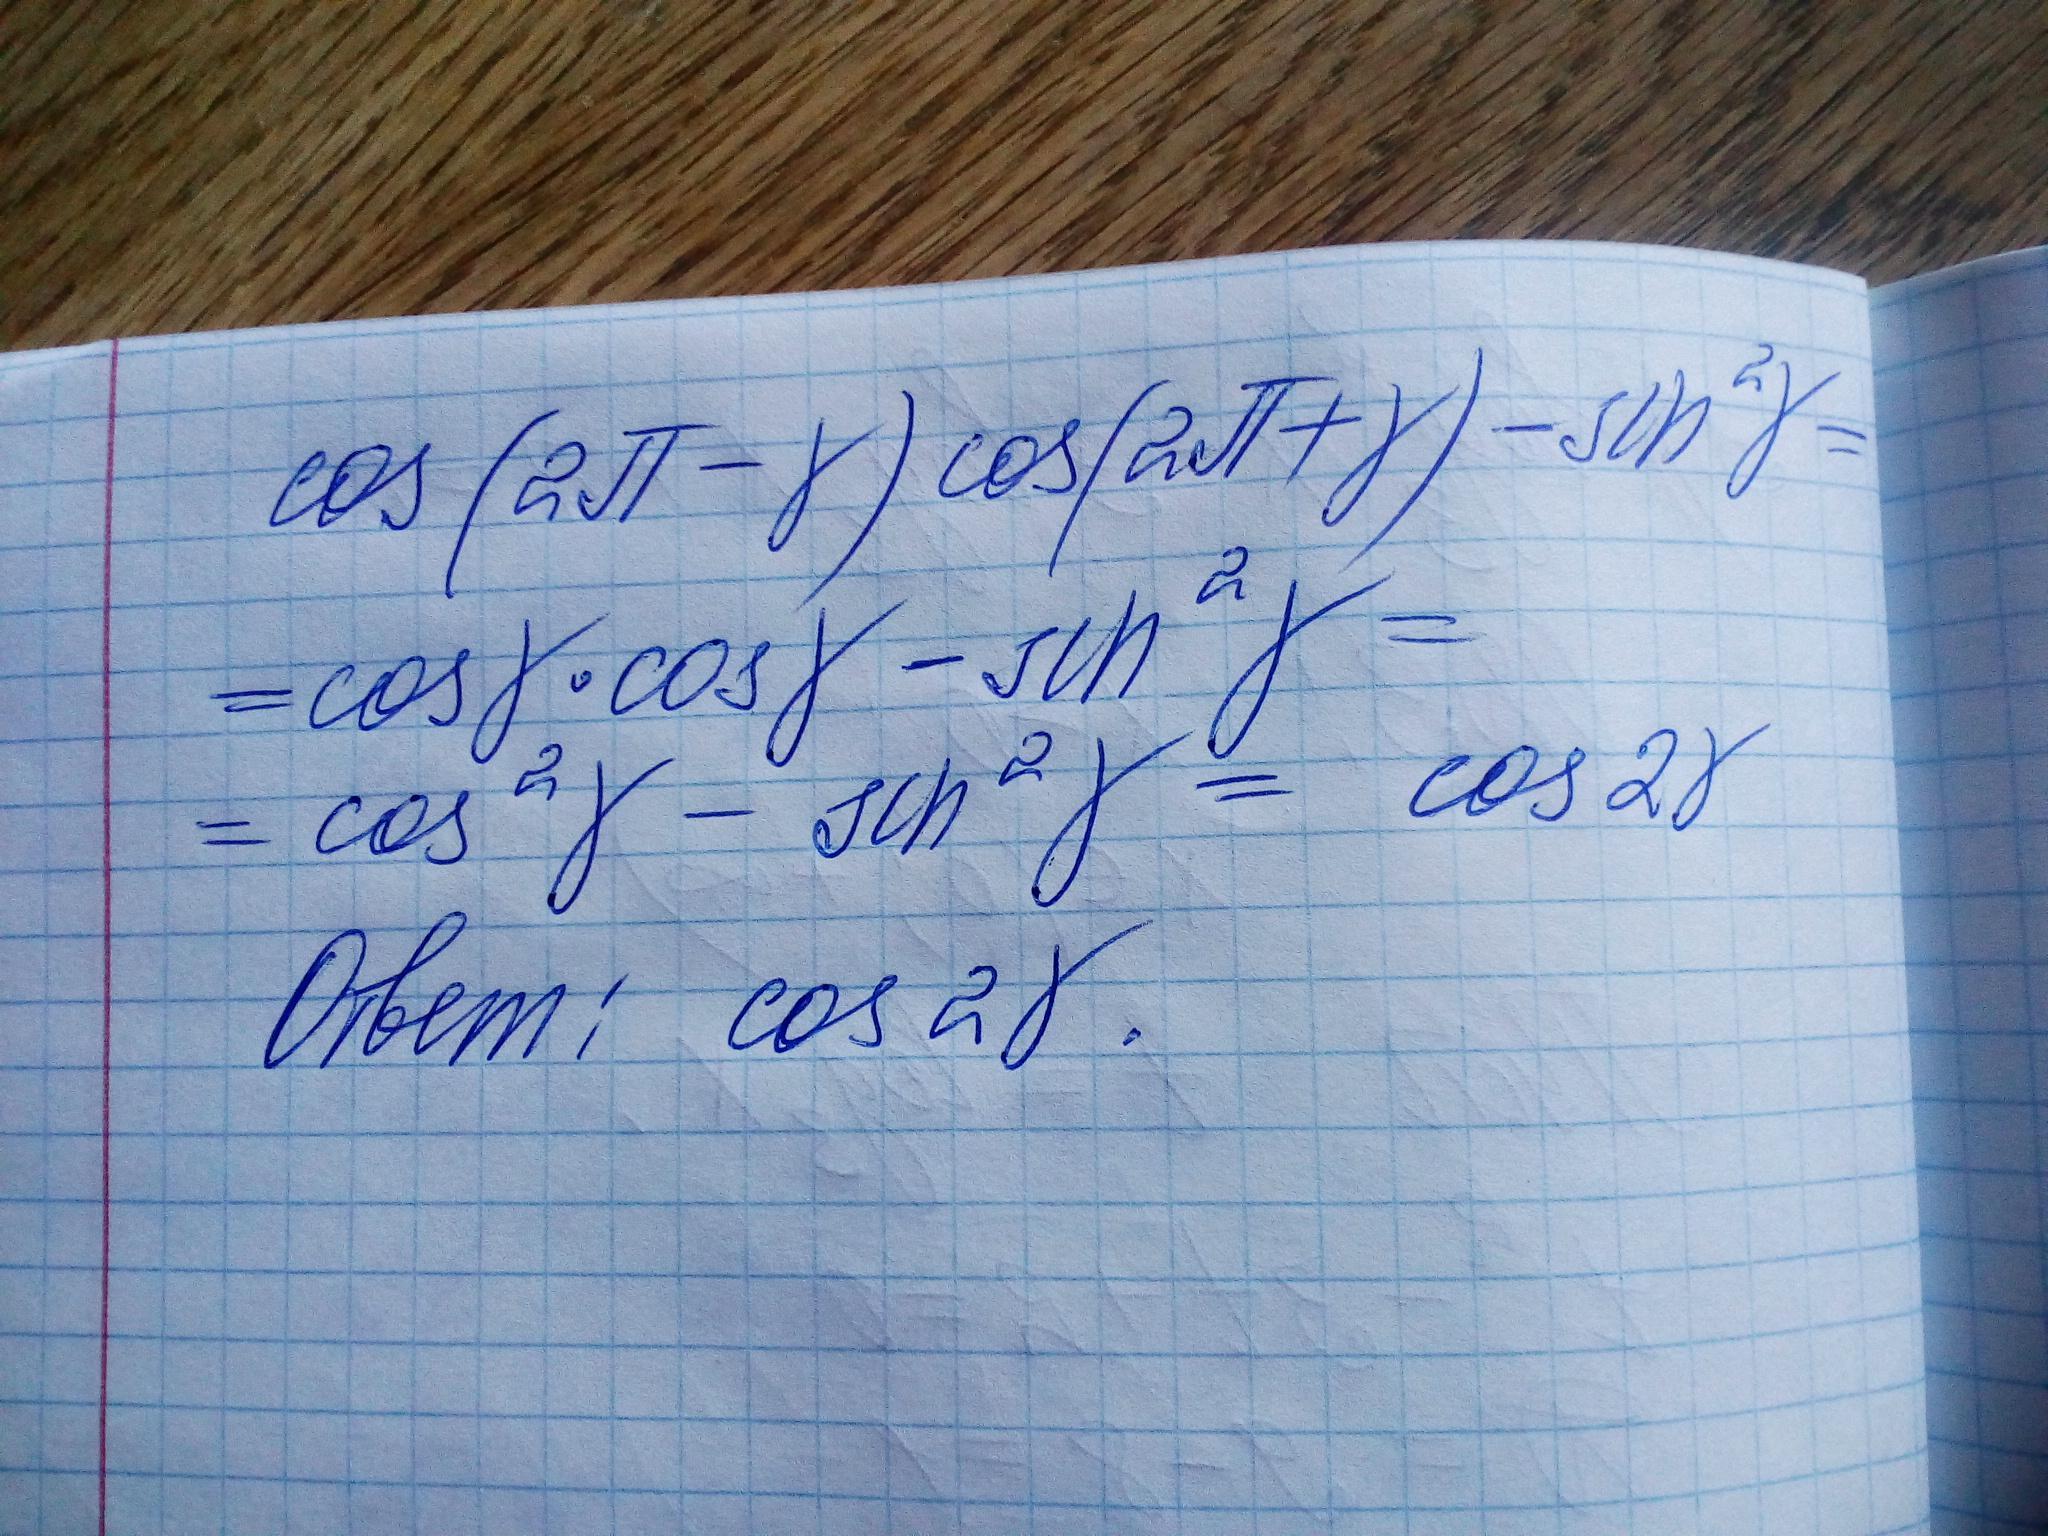 cos(2π-γ)cos(2π+γ)-sin²γ=
=cosγ·cosγ-sin²γ=
=cos²γ-sin²γ= cos2γ
Ответ: cos2γ.